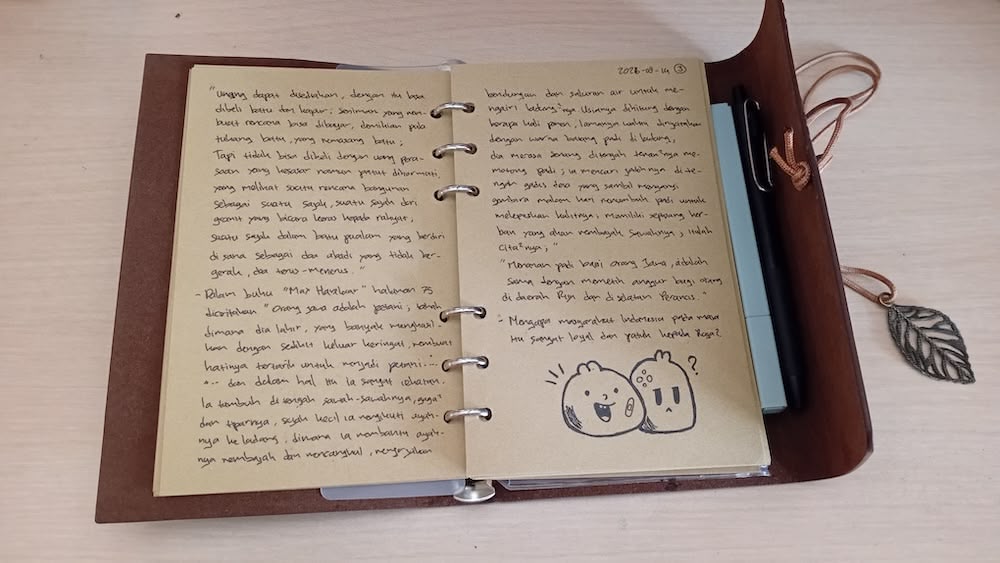 "Uang dapat disediakan, dengan itu bisa
dibeli batu dan kapur; seniman yang mem-
buat rencana bisa dibayar, demikian pada
tukang batu, yang memasang batu;
Tapi tidak bisa dibeli dengan uang pera-
saan yang besar namun patut dihormati,
yang melihat rencana bangunan
sebagai suatu sajak, suatu sajak dari
granit yang bicara keras kepada rakyat,
suatu sajak dalam batu pualam yang berdiri
di sana sebagai doa abadi yang tidak ber-
gerak, dan terus-menerus."
- Dalam buku "Max Havelaar" halaman 75
diceritakan "Orang Jawa adalah petani; tanah
dimana dia lahir, yang banyak menghasil-
kan dengan sedikit keluar keringat, membuat
hatinya tertarik untuk menjadi petani..."
"... dan dalam hal itu ia sangat cekatan.
Ia tumbuh di tengah sawah-sawahnya, gaga²
dan tiparnya, sejak kecil ia mengikuti ayah-
nya ke ladang, dimana ia membantu ayah-
nya membajak dan mencangkul, mengerjakan
2023-09-14 3
bendungan dan saluran air untuk me-
ngairi ladang²nya. Usianya dihitung dengan
berapa kali panen, lamanya waktu dinyatakan
dengan warna batang padi di ladang,
dia merasa senang ditengah teman²nya me-
motong padi; ia mencari jodohnya di te-
ngah gadis desa yang sambil menyanyi
gembira malam hari menumbuk padi untuk
melepaskan kulitnya; memiliki sepasang ker-
bau yang akan membajak sawahnya, itulah
cita²nya;"
"Menanam padi bagi orang Jawa, adalah
sama dengan memetik anggur bagi orang
di daerah Rijn dan di selatan Perancis."
- Mengapa masyarakat Indonesia pada masa
itu sangat loyal dan patuh kepada Raja?
?